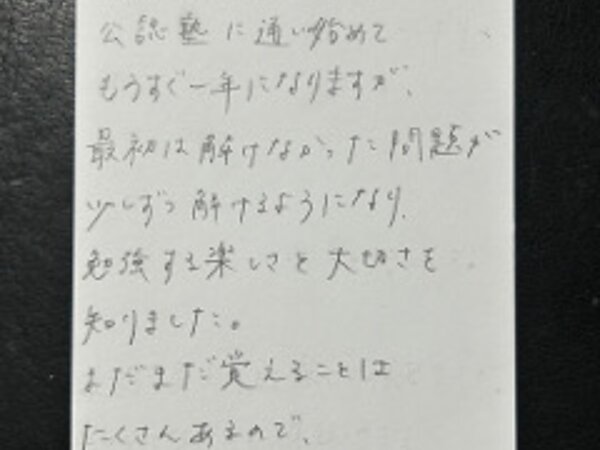 公認塾に通い始めて
もうすぐ一年になりますが、
最初は解けなかった問題が
少しずつ解けるようになり、
勉強する楽しさと大切さを
知りました。
まだまだ覚えることは
たくさんあるので、